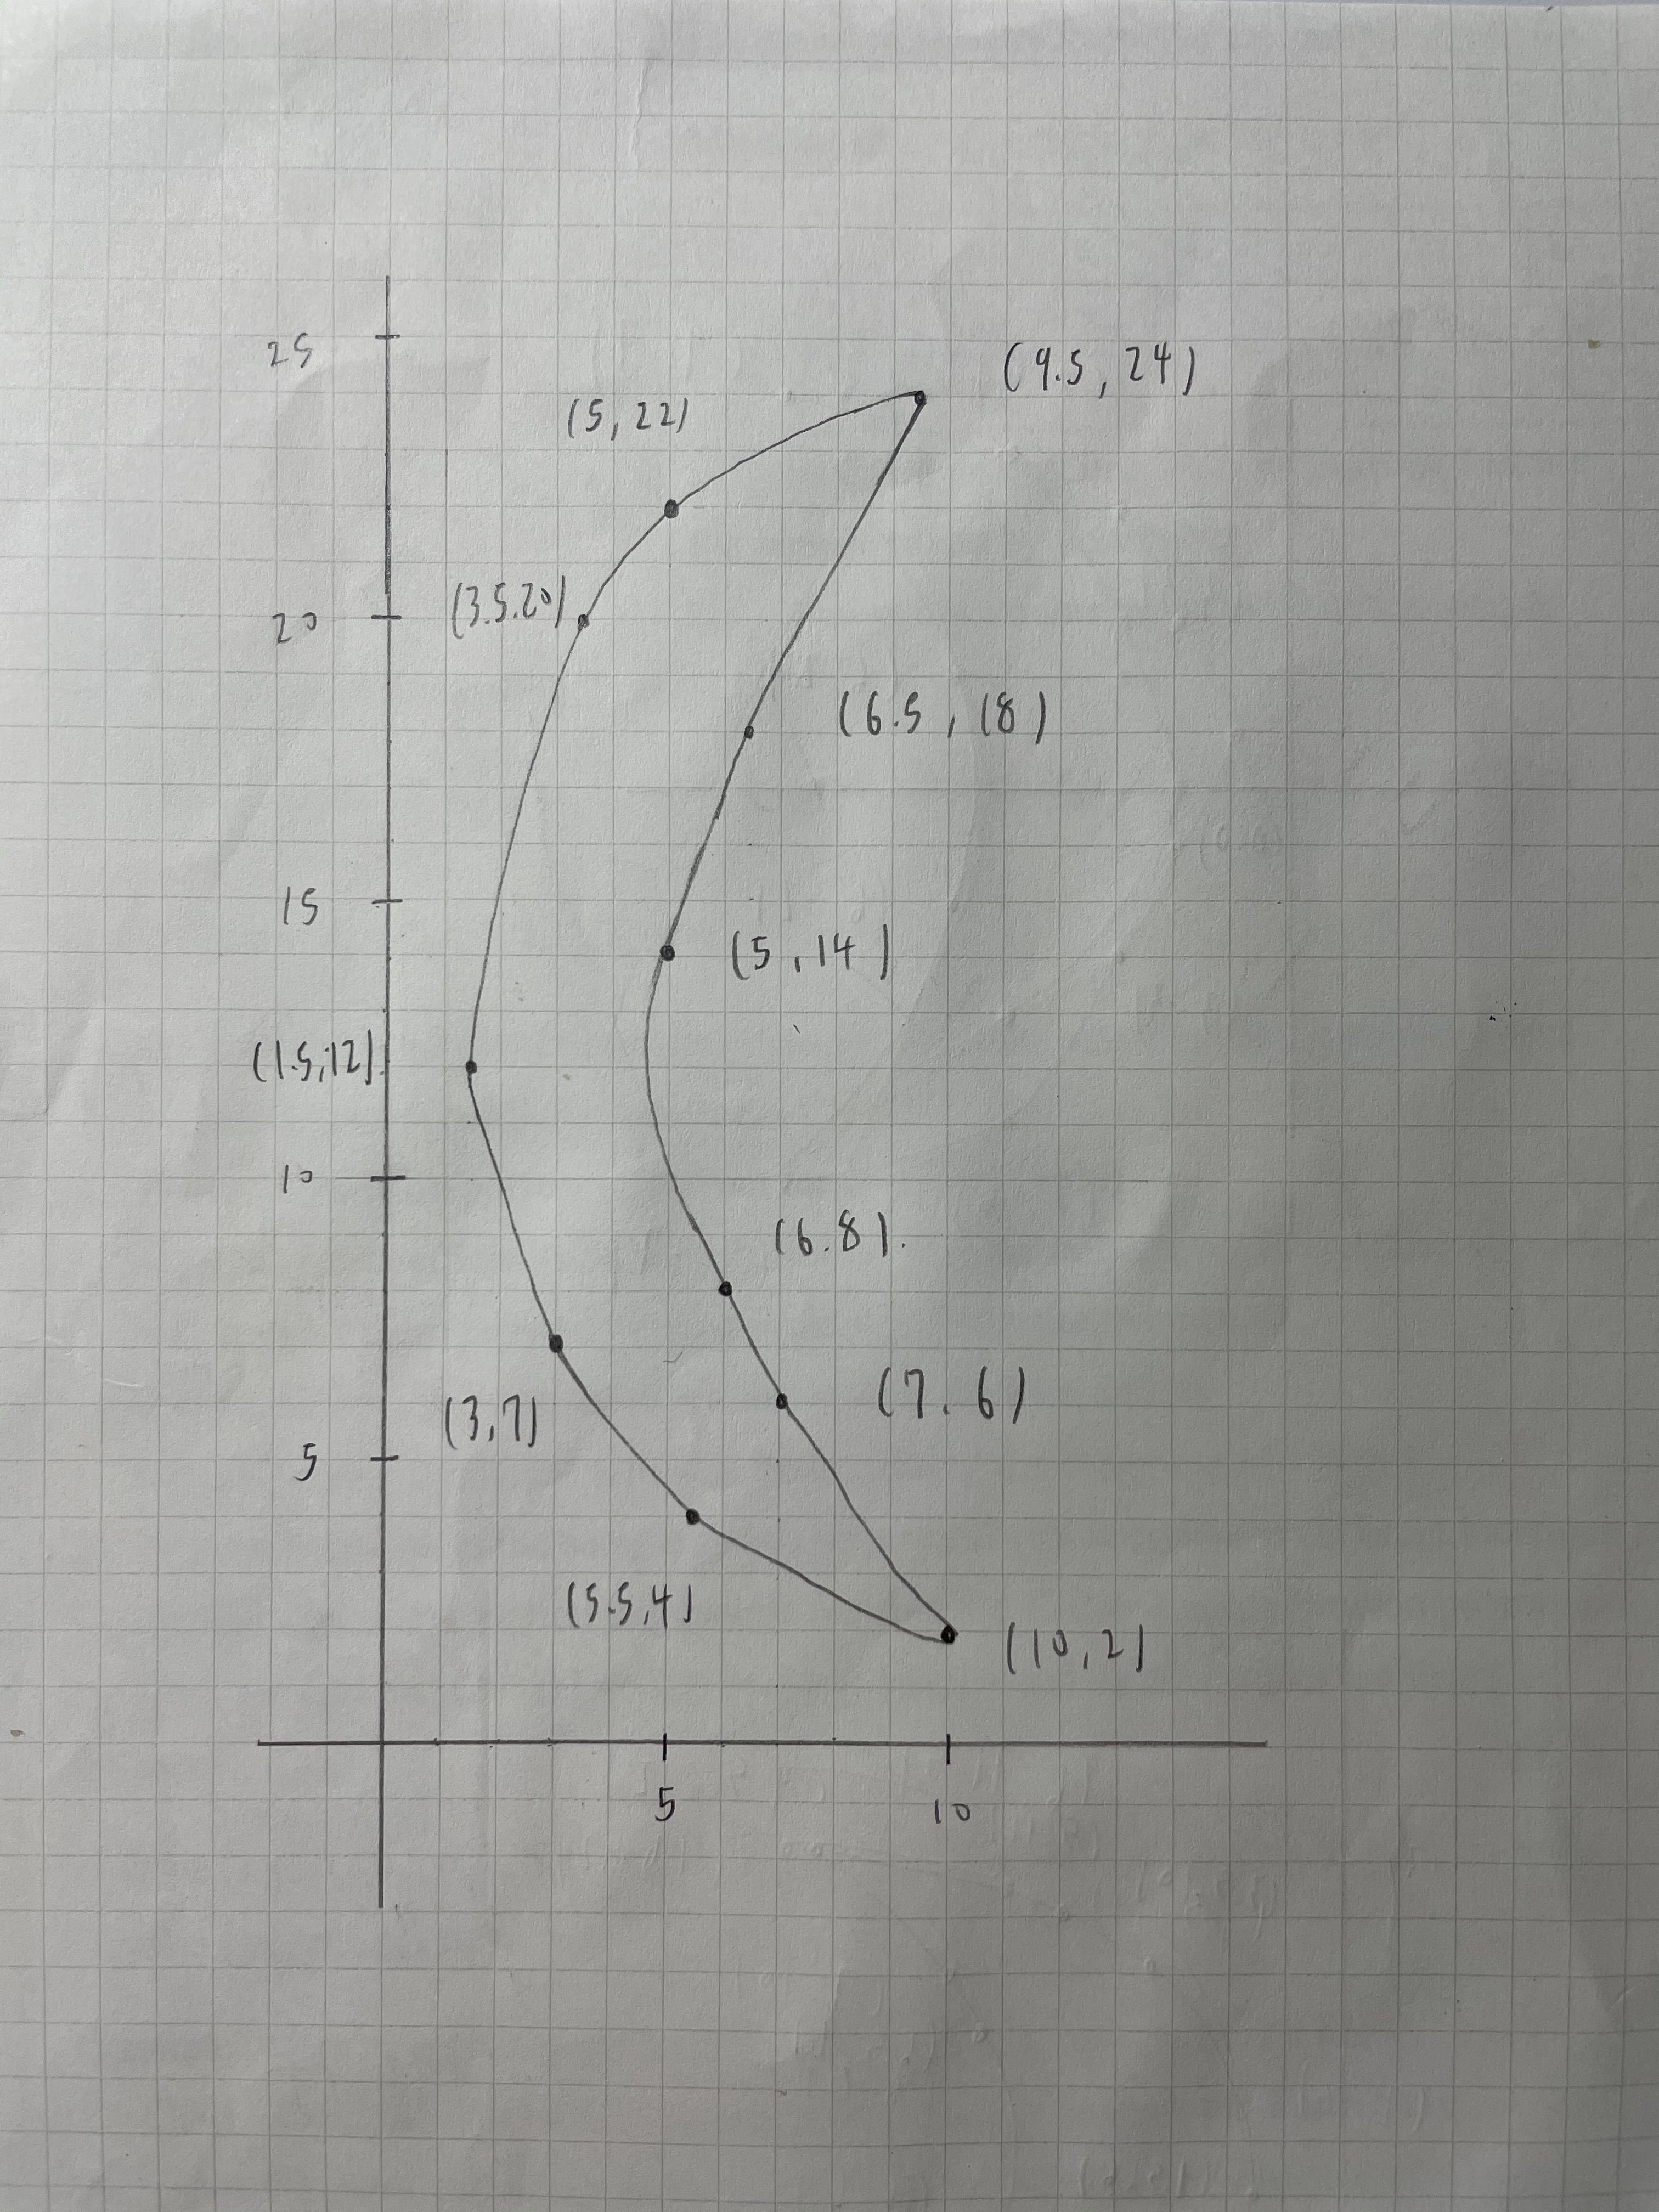 25
(9.5, 24)
(5, 22)
(3.5.20)
20
(6.5, 18)
15
(5, 14)
(1.5, 12)
10
(6.8).
(7. 6)
(3, 7)
5
(5.5, 4)
(10, 2)
5 10